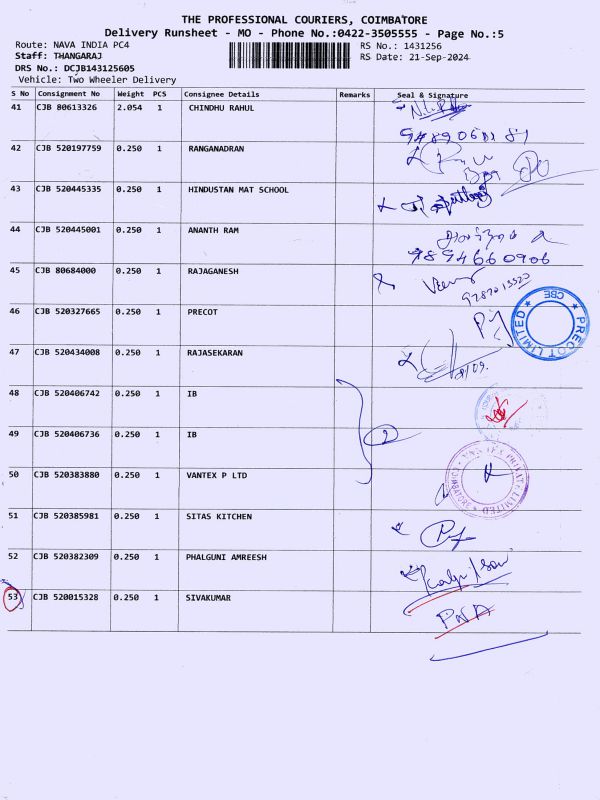 THE PROFESSIONAL COURIERS, COIMBATORE
Delivery Runsheet - MO - Phone No.:0422-3505555 - Page No.:5
Route: NAVA INDIA PC4
RS No.: 1431256
Staff: THANGARAJ
RS Date: 21-Sep-2024
DRS No.: DCJB143125605
Vehicle: Two Wheeler Delivery
S No Consignment No Weight PCS Consignee Details Remarks Seal & Signature
41 CJB 80613326 2.054 1 CHINDHU RAHUL
42 CJB 520197759 0.250 1 RANGANADRAN
43 CJB 520445335 0.250 1 HINDUSTAN MAT SCHOOL
44 CJB 520445001 0.250 1 ANANTH RAM
9894660906
45 CJB 80684000 0.250 1 RAJAGANESH
46 CJB 520327665 0.250 1 PRECOT
PRECOT LIMITED CBE
47 CJB 520434008 0.250 1 RAJASEKARAN
48 CJB 520406742 0.250 1 IB
49 CJB 520406736 0.250 1 IB
2
50 CJB 520383880 0.250 1 VANTEX P LTD
51 CJB 520385981 0.250 1 SITAS KITCHEN
52 CJB 520382309 0.250 1 PHALGUNI AMREESH
53 CJB 520015328 0.250 1 SIVAKUMAR
PNA